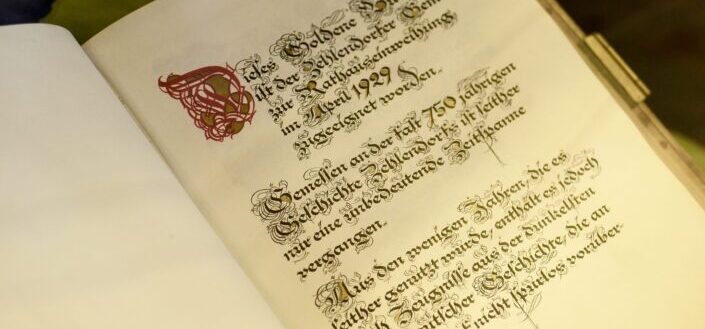 Dieses Goldene
ist der Zehlendorfer Gem
zur Rathauseinweihung
im April 1929
zugeeignet worden.
Gemessen an der fast 750 jährigen
Geschichte Zehlendorfs ist seither
nur eine unbedeutende Zeitspanne
vergangen.
Aus den wenigen Jahren, die es
seither genutzt wurde, enthält es jedoch
Zeugnisse aus der dunkelsten
Geschichte, die an
nicht spurlos vorüber-